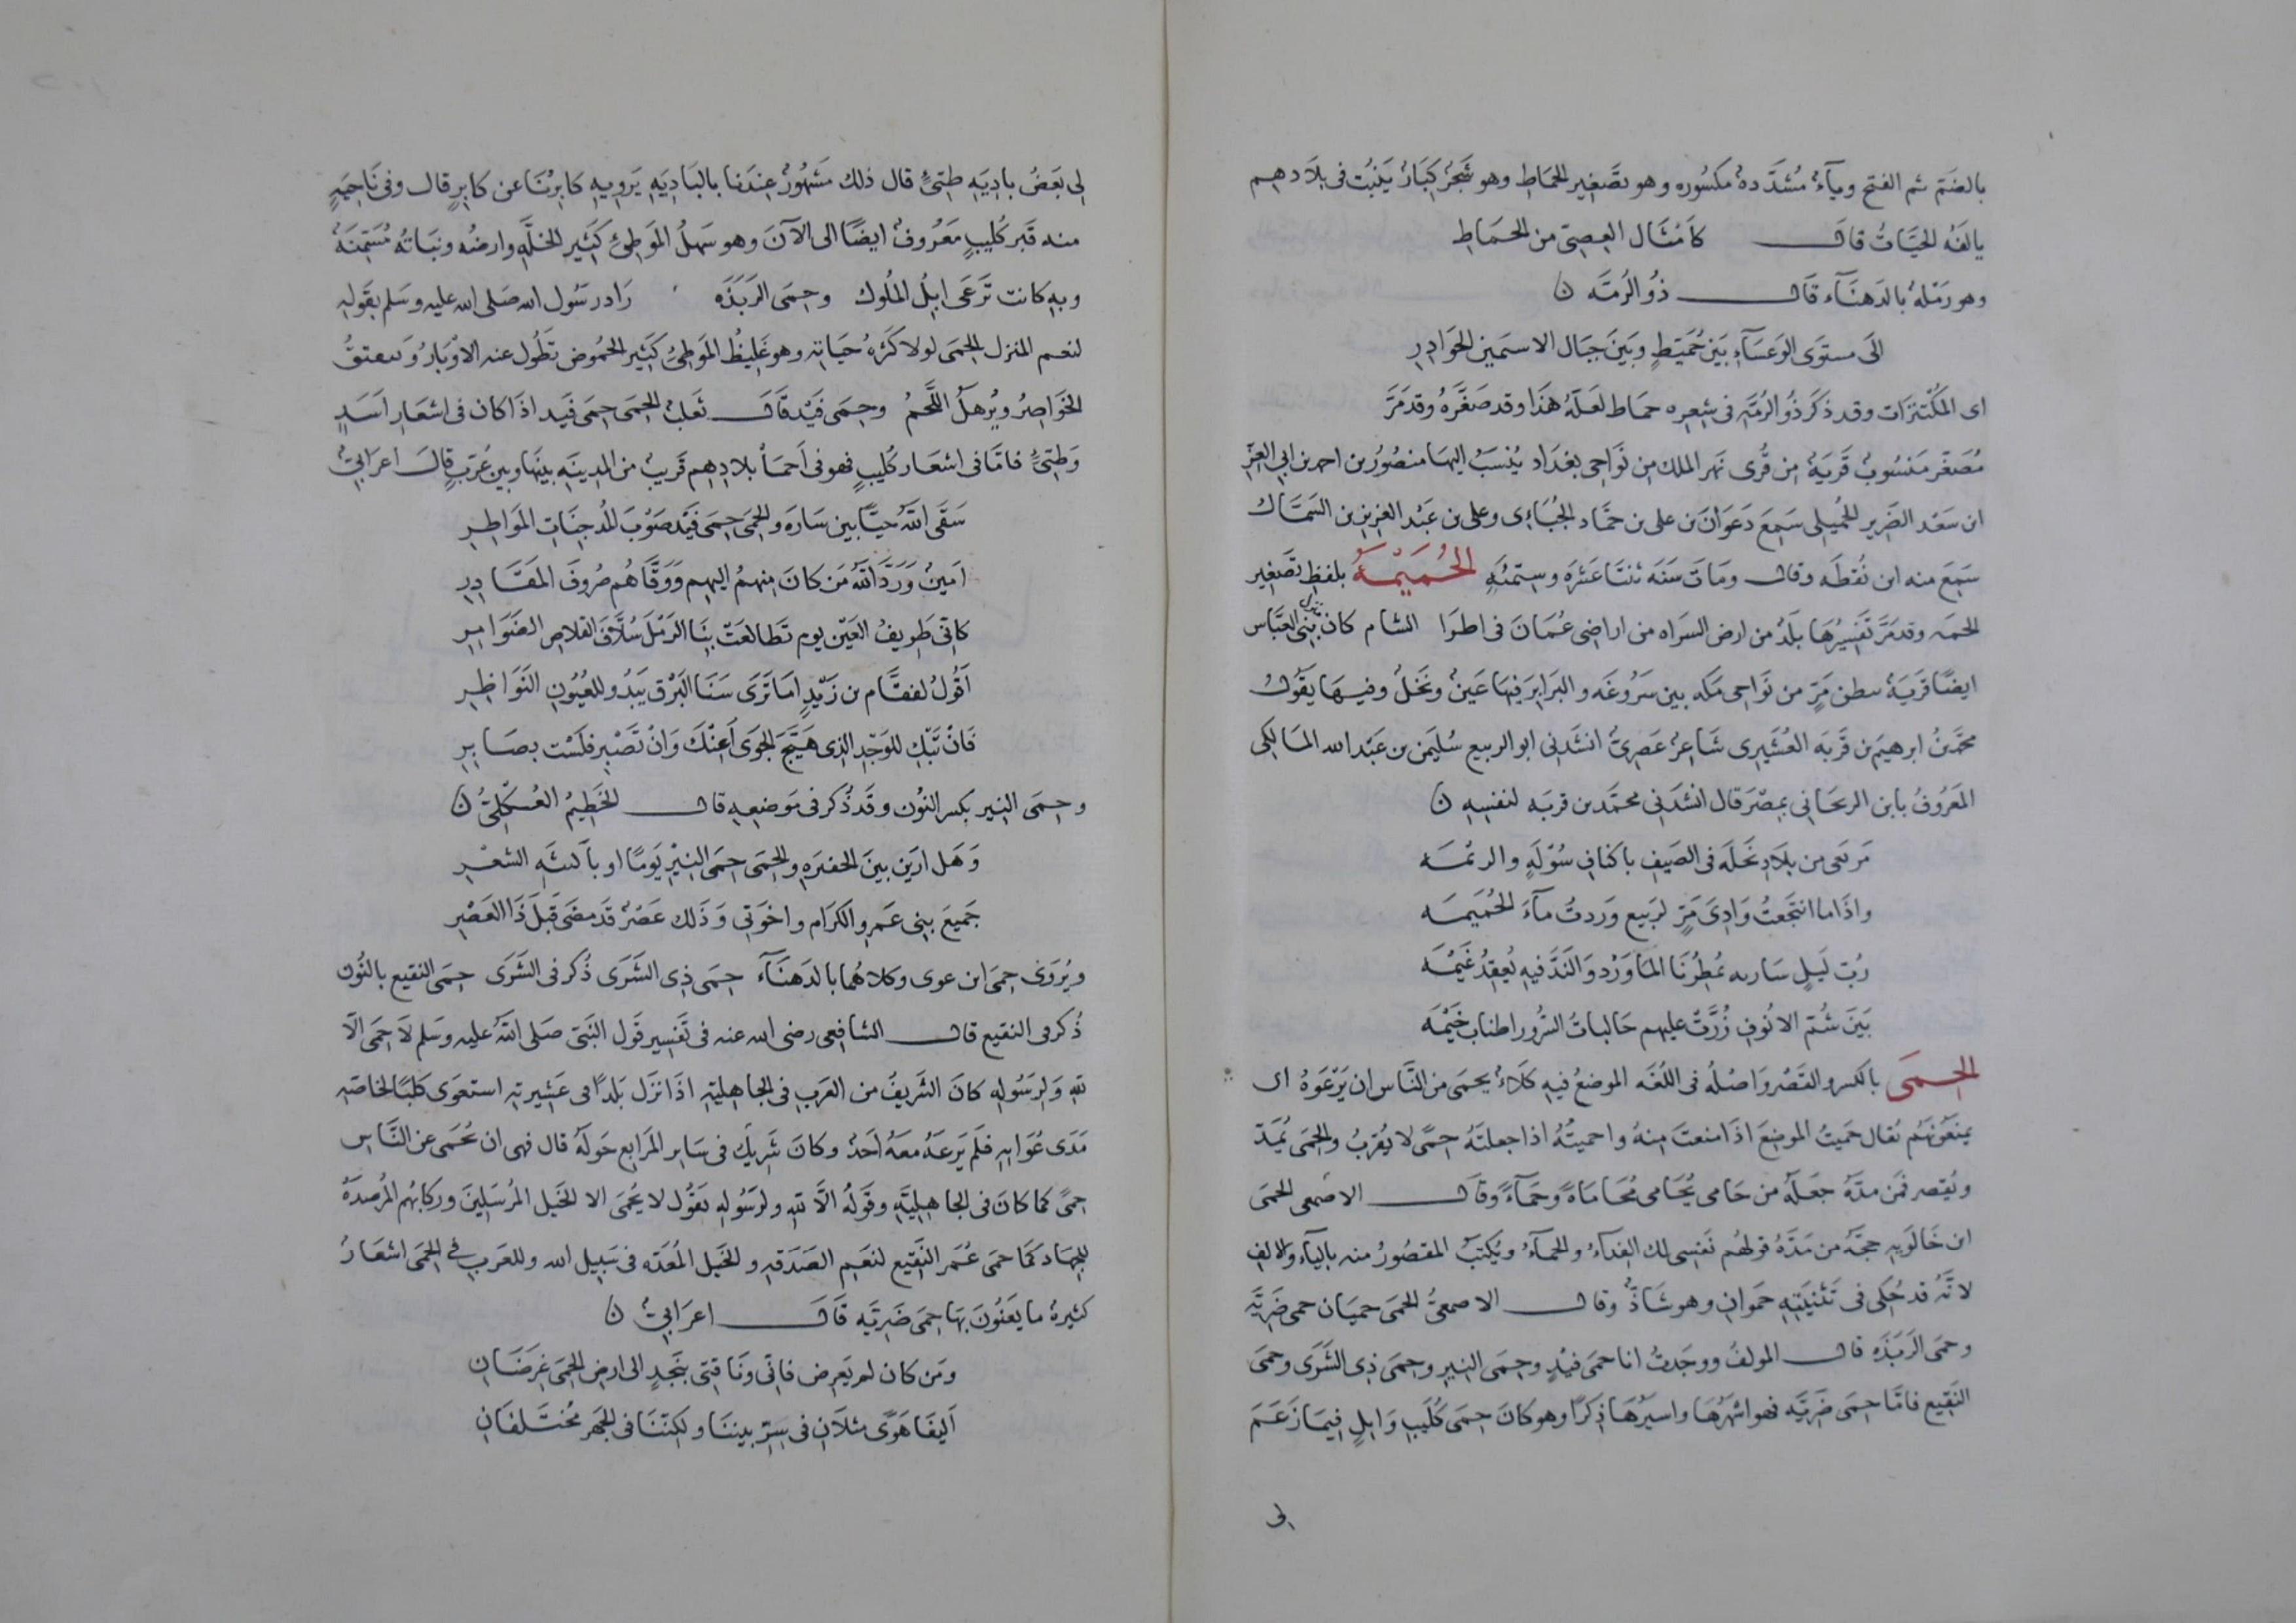 بالضم ثم الفتح وياء مُشدَّدة مكسوره وهو تصغير الحماط وهو شجر كبار ينبت فى بلادهم
يالفه الحيَّات قال كامثال العصىّ من الحماط
وهو رملة بالدهنآء قال ذو الرمّه ن
الى مستوى الوعسآء بين حُميّطٍ وبين جبال الاسمين الحوادر
اى المكتنزات وقد ذكر ذو الرمّه فى شعره حماط لعلّه هذا وقد صغّره وقد مرّ
مُصغّر منسوب قرية من قرى نهر الملك من نواحى بغداد ينسب اليها منصور بن احمد بن ابى العز
ابن سعد الضرير الحميلى سمع دعوان بن على بن حماد الجبّاءى وعلى بن عبد العزيز بن السمّاك
سمع منه ابن نقطه وقال ومات سنه ثنتا عشره وستمئه الحُمَيْمَه بلفظ تصغير
الحمه وقد مرّ تفسيرها بلد من ارض السراه من اراضى عمان فى اطرا الشام كان منزل بنى العباس
ايضًا قرية ببطن مرٍّ من نواحى مكه بين سروعَه والبرابر فيها عين ونخل وفيها يقول
محمد بن ابرهيم بن قربه العُشَيرى شاعر عصرىّ انشدنى ابو الربيع سليمن بن عبد الله المالكى
المعروف بابن الريحانى بمصر قال انشدنى محمّد بن قربه لنفسه ن
مرتعى من بلاد نخله فى الصيف باكناف سُوْلَهٍ والريمه
واذا ما انتجعتُ وادى مرٍّ لربيع وردتُ مآء الحُمَيمه
رُبّ ليلٍ ساريه يُمطرنا الماورد والندّ فيه يعقد غيمه
بين شمّ الانوف زُرّت عليهم حالبات السرور اطناب خيمه
الحِمَى بالكسر والقصر واصله فى اللغه الموضع فيه كلاء يحمى من النّاس ان يرعوه اى
يمنعونهم يقال حميتُ الموضع اذا منعت منه واحميتُه اذا جعلته حمىً لا يُقرب والحمى يُمدّ
ويُقصر فمن مدّه جعله من حامى يُحامى مُحاماةً وحمآءً وقال الاصمعى الحمى
ابن خالويه حجّه من مدّه قولهم نفسى لك الفدآءُ والحمآءُ ويُكتبُ المقصور منه باليآء والالف
لانّه قد حُكى فى تثنيته حموان وهو شاذٌّ وقال الاصمعىُّ الحمى حميان حمى ضريّه
وحمى الربَذَه قال المولفُ ووجدتُ انا حمى فيدٍ وحمى النير وحمى ذى الشرى وحمى
النقيع فامّا حمى ضريّه فهو اشهرها واسيرُها ذكرًا وهو كان حمى كُليب وايلٍ فيما زعم
لى
لى بعضُ باديه طىّء قال ذلك مشهورٌ عندنا بالباديه يرويه كابرنا عن كابرٍ قال وفى ناحيهٍ
منه قبر كليبٍ معروفٌ ايضًا الى الآن وهو سهلُ الموطئ كثير الخلّه وارضُه ونباتُه مُسَمّنَةٌ
وبه كانت ترعى ابل الملوك وحمى الربذه راد رسول الله صلى الله عليه وسلم بقوله
لنعم المنزل الحمى لولا كثرهُ حياته وهو غليظُ الموطئ كثير الحموض تطول عنه الاوبار وتتفتق
الخواصر ويُرهل اللَّحمُ وحمى فيد قال ثعلب الحمى حمى فيد اذا كان فى اشعار اسدٍ
وطىّء فامّا فى اشعار كليبٍ فهو فى احمآ بلادهم قريب من المدينه بينها وبين عُرَبٍ قال اعرابىّ
سقى اللّه حيًّا بين ساره والحمى حمى فيد صوبَ المُدجنات المواطر
امين وردّ اللّه من كان منهم اليهم ووقّاهم صروف المقادر
كانّى طريفُ العين يوم تطالعت بنا الرمل سُلّاف القلاص الضوامر
اقول لفقّام بن زيدٍ اما ترى سنا البرق يبدو للعيون النواظر
فان تبك للوجد الذى هيّج الجوى اعنك وان تصبر فلست بصابر
وحمى النير بكسر النون وقد ذُكر فى موضعه قال الخطيمُ العُكْلىّ ن
وهل ارين بين الحفيرهِ والحمى حمى النير يومًا او باكثبه الشعر
جميع بنى عمرو الكرام واخوتى وذلك عصر قد مضى قبل ذا العصر
ويُروى حمى ابن عوى وكلاهما بالدهنآء حمى ذى الشرى ذُكر فى الشرى حمى النقيع بالنون
ذُكر فى النقيع قال الشافعى رضى الله عنه فى تفسير قول النبى صلى اللّه عليه وسلم لا حمى الّا
للّه ولرسوله كان الشريفُ من العرب فى الجاهليه اذا نزل بلدًا فى عشيرته استعوى كلبًا لخاصّه
مدى عُوَايه فلم يرعه معه احدٌ وكان شريك فى ساير المرابع حوله قال فهى ان يحمى عن الناس
حمىً كما كان فى الجاهليّه وقوله الّا للّه ولرسوله يقول لا يُحمى الا لخيل المرسلين وركابهم المُرصدة
للجهاد كما حمى عُمر النقيع لنعم الصدقه والخيل المُعدّه فى سبيل الله وللعرب فى الحمى اشعارٌ
كثيرة ما يعنون بها حمى ضريّه قال اعرابىّ ن
ومن كان لم يعرض فانّى وناقتى بنجدٍ الى ارض الحمى غرضان
اليفا هوًى مثلان فى سرّ بيننا ولكننا فى الجهر مختلفان